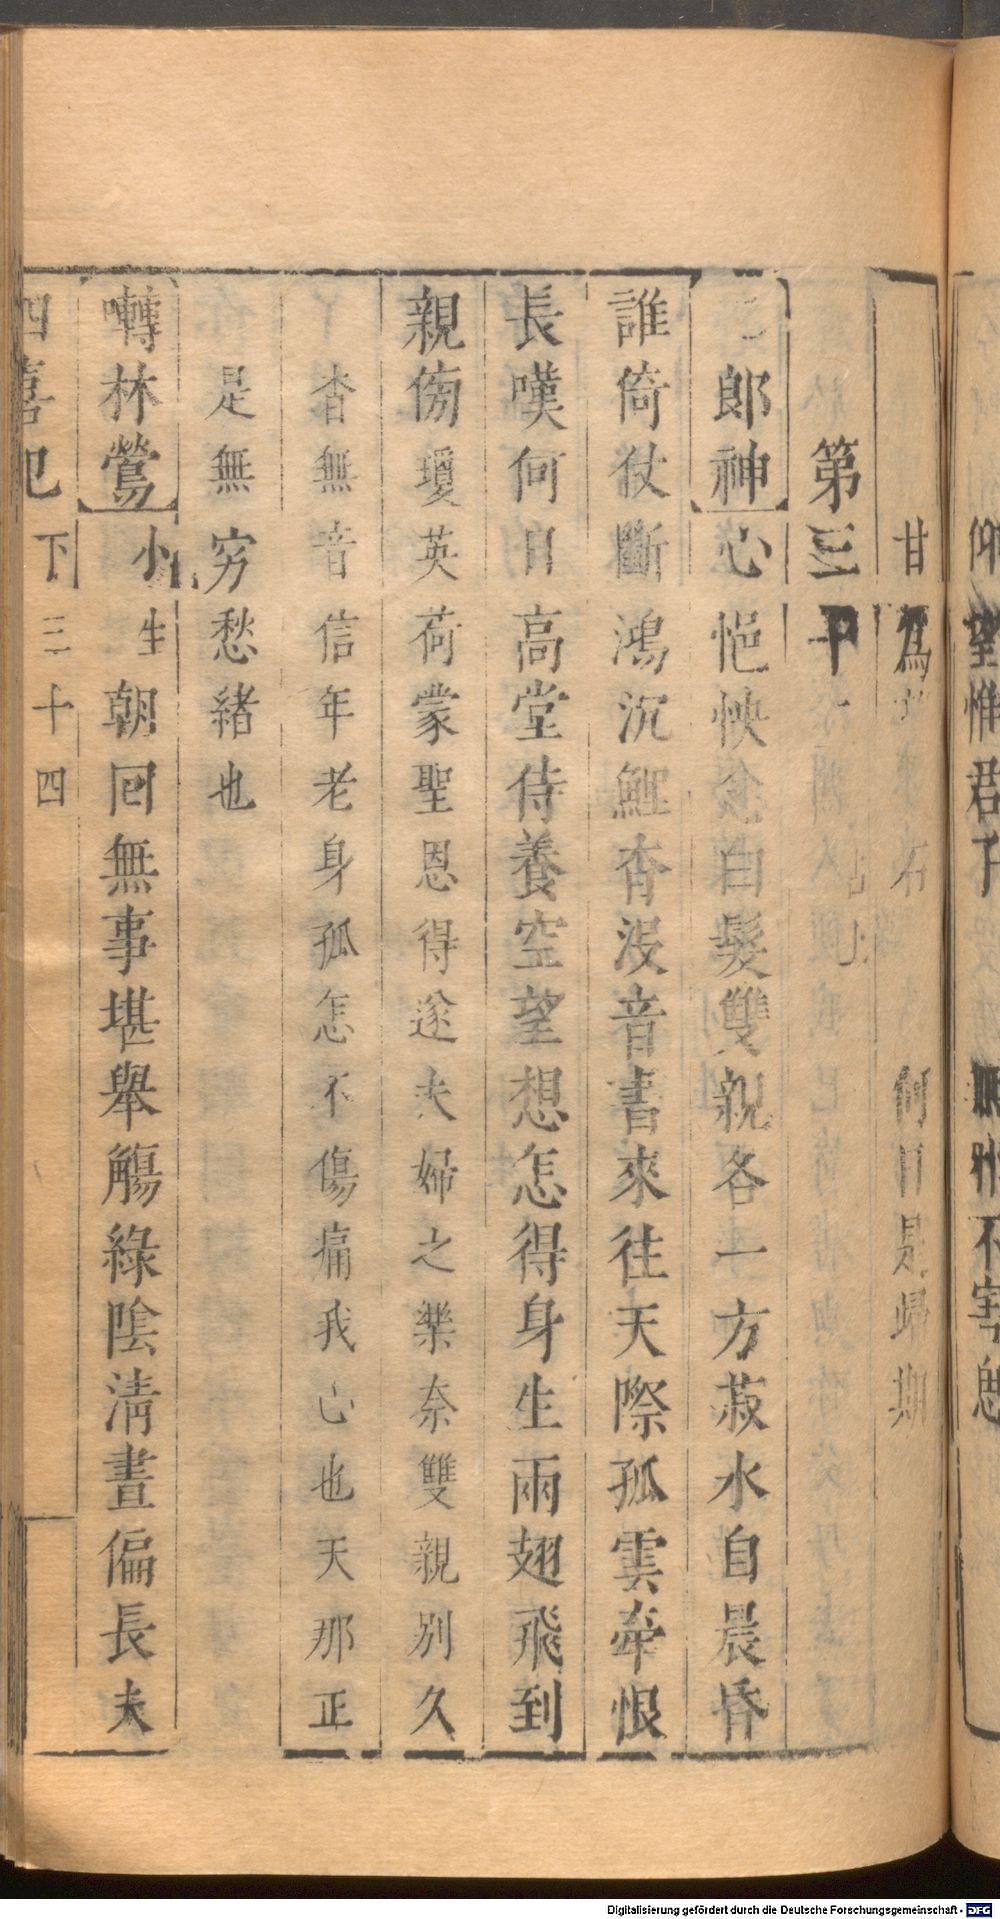 仰望惟君子
甘爲
何日是歸期
第三
二郎神心悒怏念白髮雙親各一方菽水自晨昏
誰倚仗斷鴻沉鯉杳沒音書來往天際孤雲牽恨
長嘆何日高堂侍養空望想怎得身生兩翅飛到
親傍瓊英荷蒙聖恩得遂夫婦之樂奈雙親別久
杳無音信年老身孤怎不傷痛我心也天那正
是無窮愁緒也
囀林鶯小生朝回無事堪舉觴綠陰淸晝偏長夫
四喜記 下 三十四
Digitalisierung gefördert durch die Deutsche Forschungsgemeinschaft - DFG